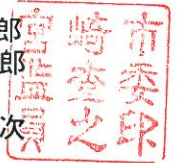 郎
郎
次
宮崎市
監査委
員之印